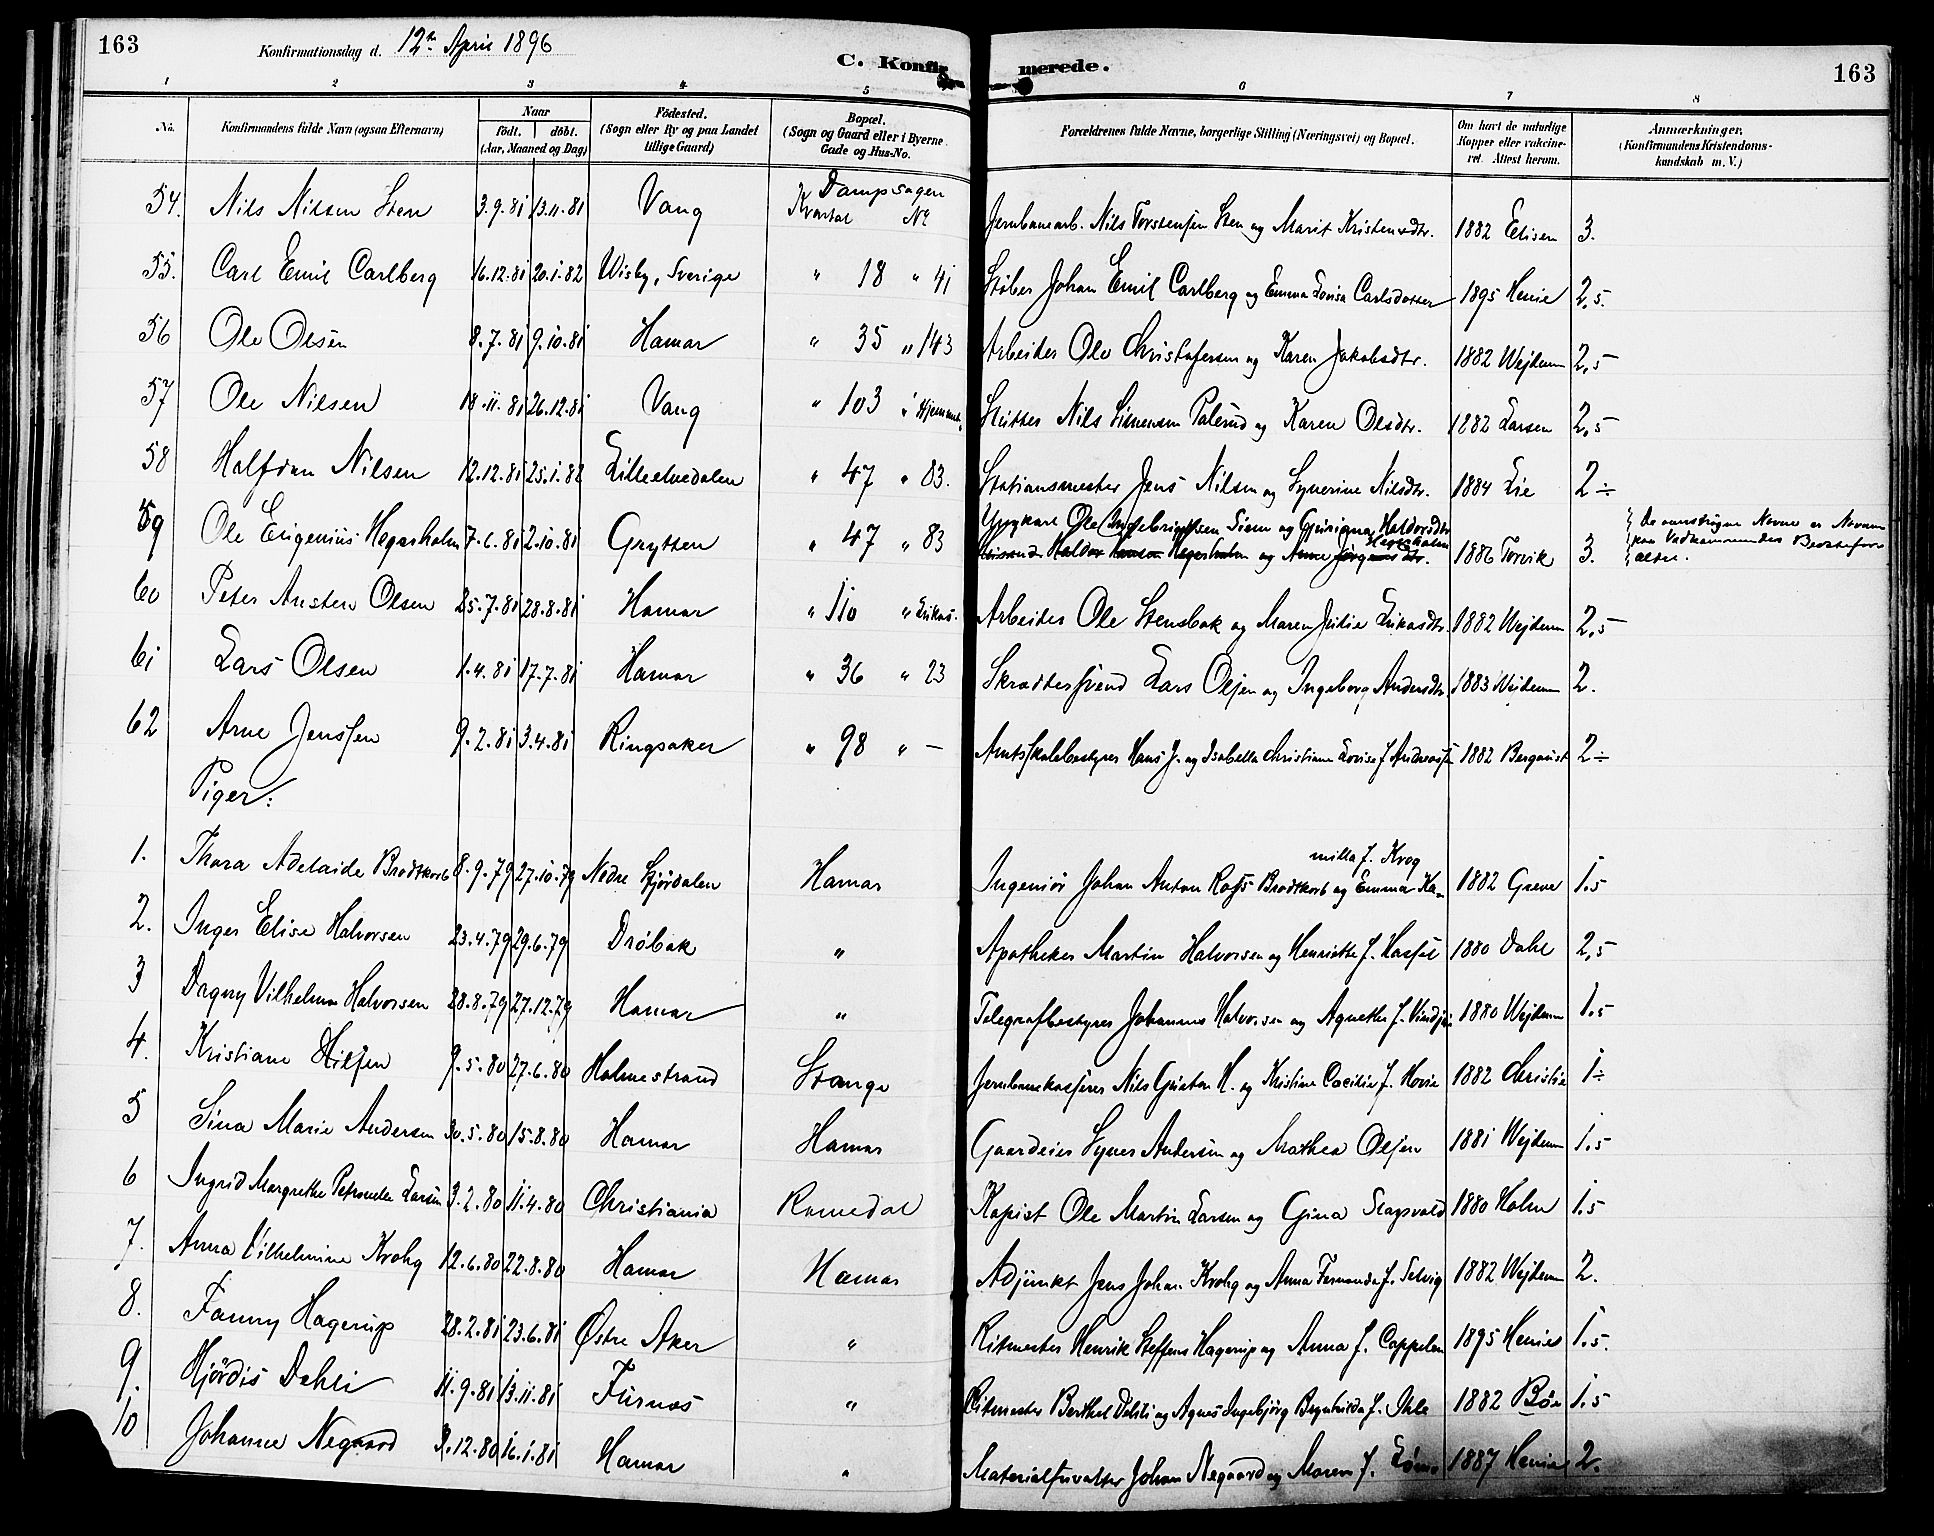 163 Konfirmationsdag d. 12te April 1896 C. Konfirmerede. 163
1 2 3 4 5 6 7 8
No. Konfirmandens fulde Navn (ogsaa Efternavn) Naar födt. döbt. (Aar, Maaned og Dag) Födested. (Sogn eller By og paa Landet tillige Gaard) Bopæl. (Sogn og Gaard eller i Byerne Gade og Hus-No. Forældrenes fulde Navne, borgerlige Stilling (Næringsvei) og Bopæl. Om havt de naturlige Kopper eller vakcineret. Attest herom. Anmærkninger, (Konfirmandens Kristendomskundskab m. V.)
54. Nils Nilsen Sten 3.9.81 13.11.81 Vang Dampsagen Kvartal No Jernbanearb. Nils Torstensen Sten og Marit Kristensdtr. 1882 Ellsen 3.
55. Carl Emil Carlberg 16.12.81 20.1.82 Wisby, Sverige " 18 " 41 Støber Johan Emil Carlberg og Emma Lovisa Carlsdotter 1895 Henie 2,5.
56 Ole Olsen 8.7.81 9.10.81 Hamar " 35 " 143 Arbeider Ole Christofersen og Karen Jakobsdtr. 1882 Wejdem 2,5
57 Ole Nilsen 18.11.81 26.12.81 Vang " 103 " Hjemmet. Nils Simensen Palerud og Karen Olsdtr. 1882 Larsen 2,5
58 Halfdan Nilsen 12.12.81 25.1.82 Lilleelvedalen " 47 " 83. Stationsmester Jens Nilsen og Synerine Nilsdtr. 1884 Lie 2÷
59 Ole Eugenius Hegerholm 7.6.81 2.10.81 Grytten " 47 " 83 Ole Ingebrigtsen Siem og Haldorsdtr Hegerholm 1886 Torvik 3. De overstrøgne Navne er Navnene paa Vedkommendes Bedsteforældre.
Haldor Hegerholm og Anne Jørgensdtr.
60 Peter Austen Olsen 25.7.81 28.8.81 Hamar " 110 " Arbeider Ole Stensbak og Maren Julie Lukasdtr. 1882 Wejdem 2,5
61 Lars Olsen 1.4.81 17.7.81 Hamar " 36 " 23 Skrædersvend Lars Olsen og Ingeborg Andersdtr. 1883 Wejdem 2.
62 Arne Jenssen 9.2.81 3.4.81 Ringsaker " 98 " – Amtsskolebestyrer Hans J. og Isabella Christiane Lovise f. Andreassen 1882 Berquist 2÷
Piger:
1. Thora Adelaide Brodtkorb 8.9.79 27.10.79 Nedre Stjørdalen Hamar Ingeniør Johan Anton Ross Brodtkorb og Emma Kamilla f. Krog 1882 Greve 1.5
2. Inger Elise Halvorsen 23.4.79 29.6.79 Drøbak " Apotheker Martin Halvorsen og Henriette f. Hasfel 1880 Dahl 2,5
3 Dagny Vilhelmine Halvorsen 28.8.79 27.12.79 Hamar " Telegrafbestyrer Johannes Halvorsen og Agnethe f. 1880 Wejdem 1.5
4. Kristiane Hilsen 9.5.80 27.6.80 Holmestrand Stange Jernbanekasserer Nils Gustav H. og Kristine Cecilie f. Hovie 1882 Christie 1÷
5 Sina Marie Andersen 30.5.80 15.8.80 Hamar Hamar Gaardeier Syver Andersen og Mathea Olsen 1881 Wejdem 1.5
6 Ingrid Margrethe Petronelle Larsen 3.2.80 11.4.80 Christiania Romedal Kopist Ole Martin Larsen og Gina Slagsvold 1880 Holm 1.5
7. Anna Vilhelmine Krohg 12.6.80 22.8.80 Hamar Hamar Adjunkt Jens Johan Krohg og Anna Fernanda f. Selvig 1882 Wejdem 2.
8. Fanny Hagerup 28.2.81 23.6.81 Østre Aker " Ritmester Henrik Steffens Hagerup og Anna f. Cappelen 1895 Henie 1.5.
9. Hjørdis Dehli 11.9.81 13.11.81 Furnes " Ritmester Berthel Dehli og Agnes Ingebjørg Brynhilda f. Ihle 1882 Bøe 1.5
10 Johanne Negaard 3.12.80 16.1.81 Hamar " Materialforvalter Johan Negaard og Maren f. 1887 Henie 2.